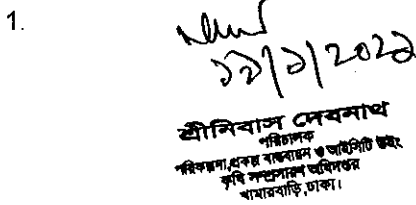 1.
১১/১/২০২১
শ্রীনিবাস দেবনাথ
পরিচালক
পরিকল্পনা, প্রকল্প বাস্তবায়ন ও আইসিটি উইং
কৃষি সম্প্রসারণ অধিদপ্তর
খামারবাড়ি, ঢাকা।